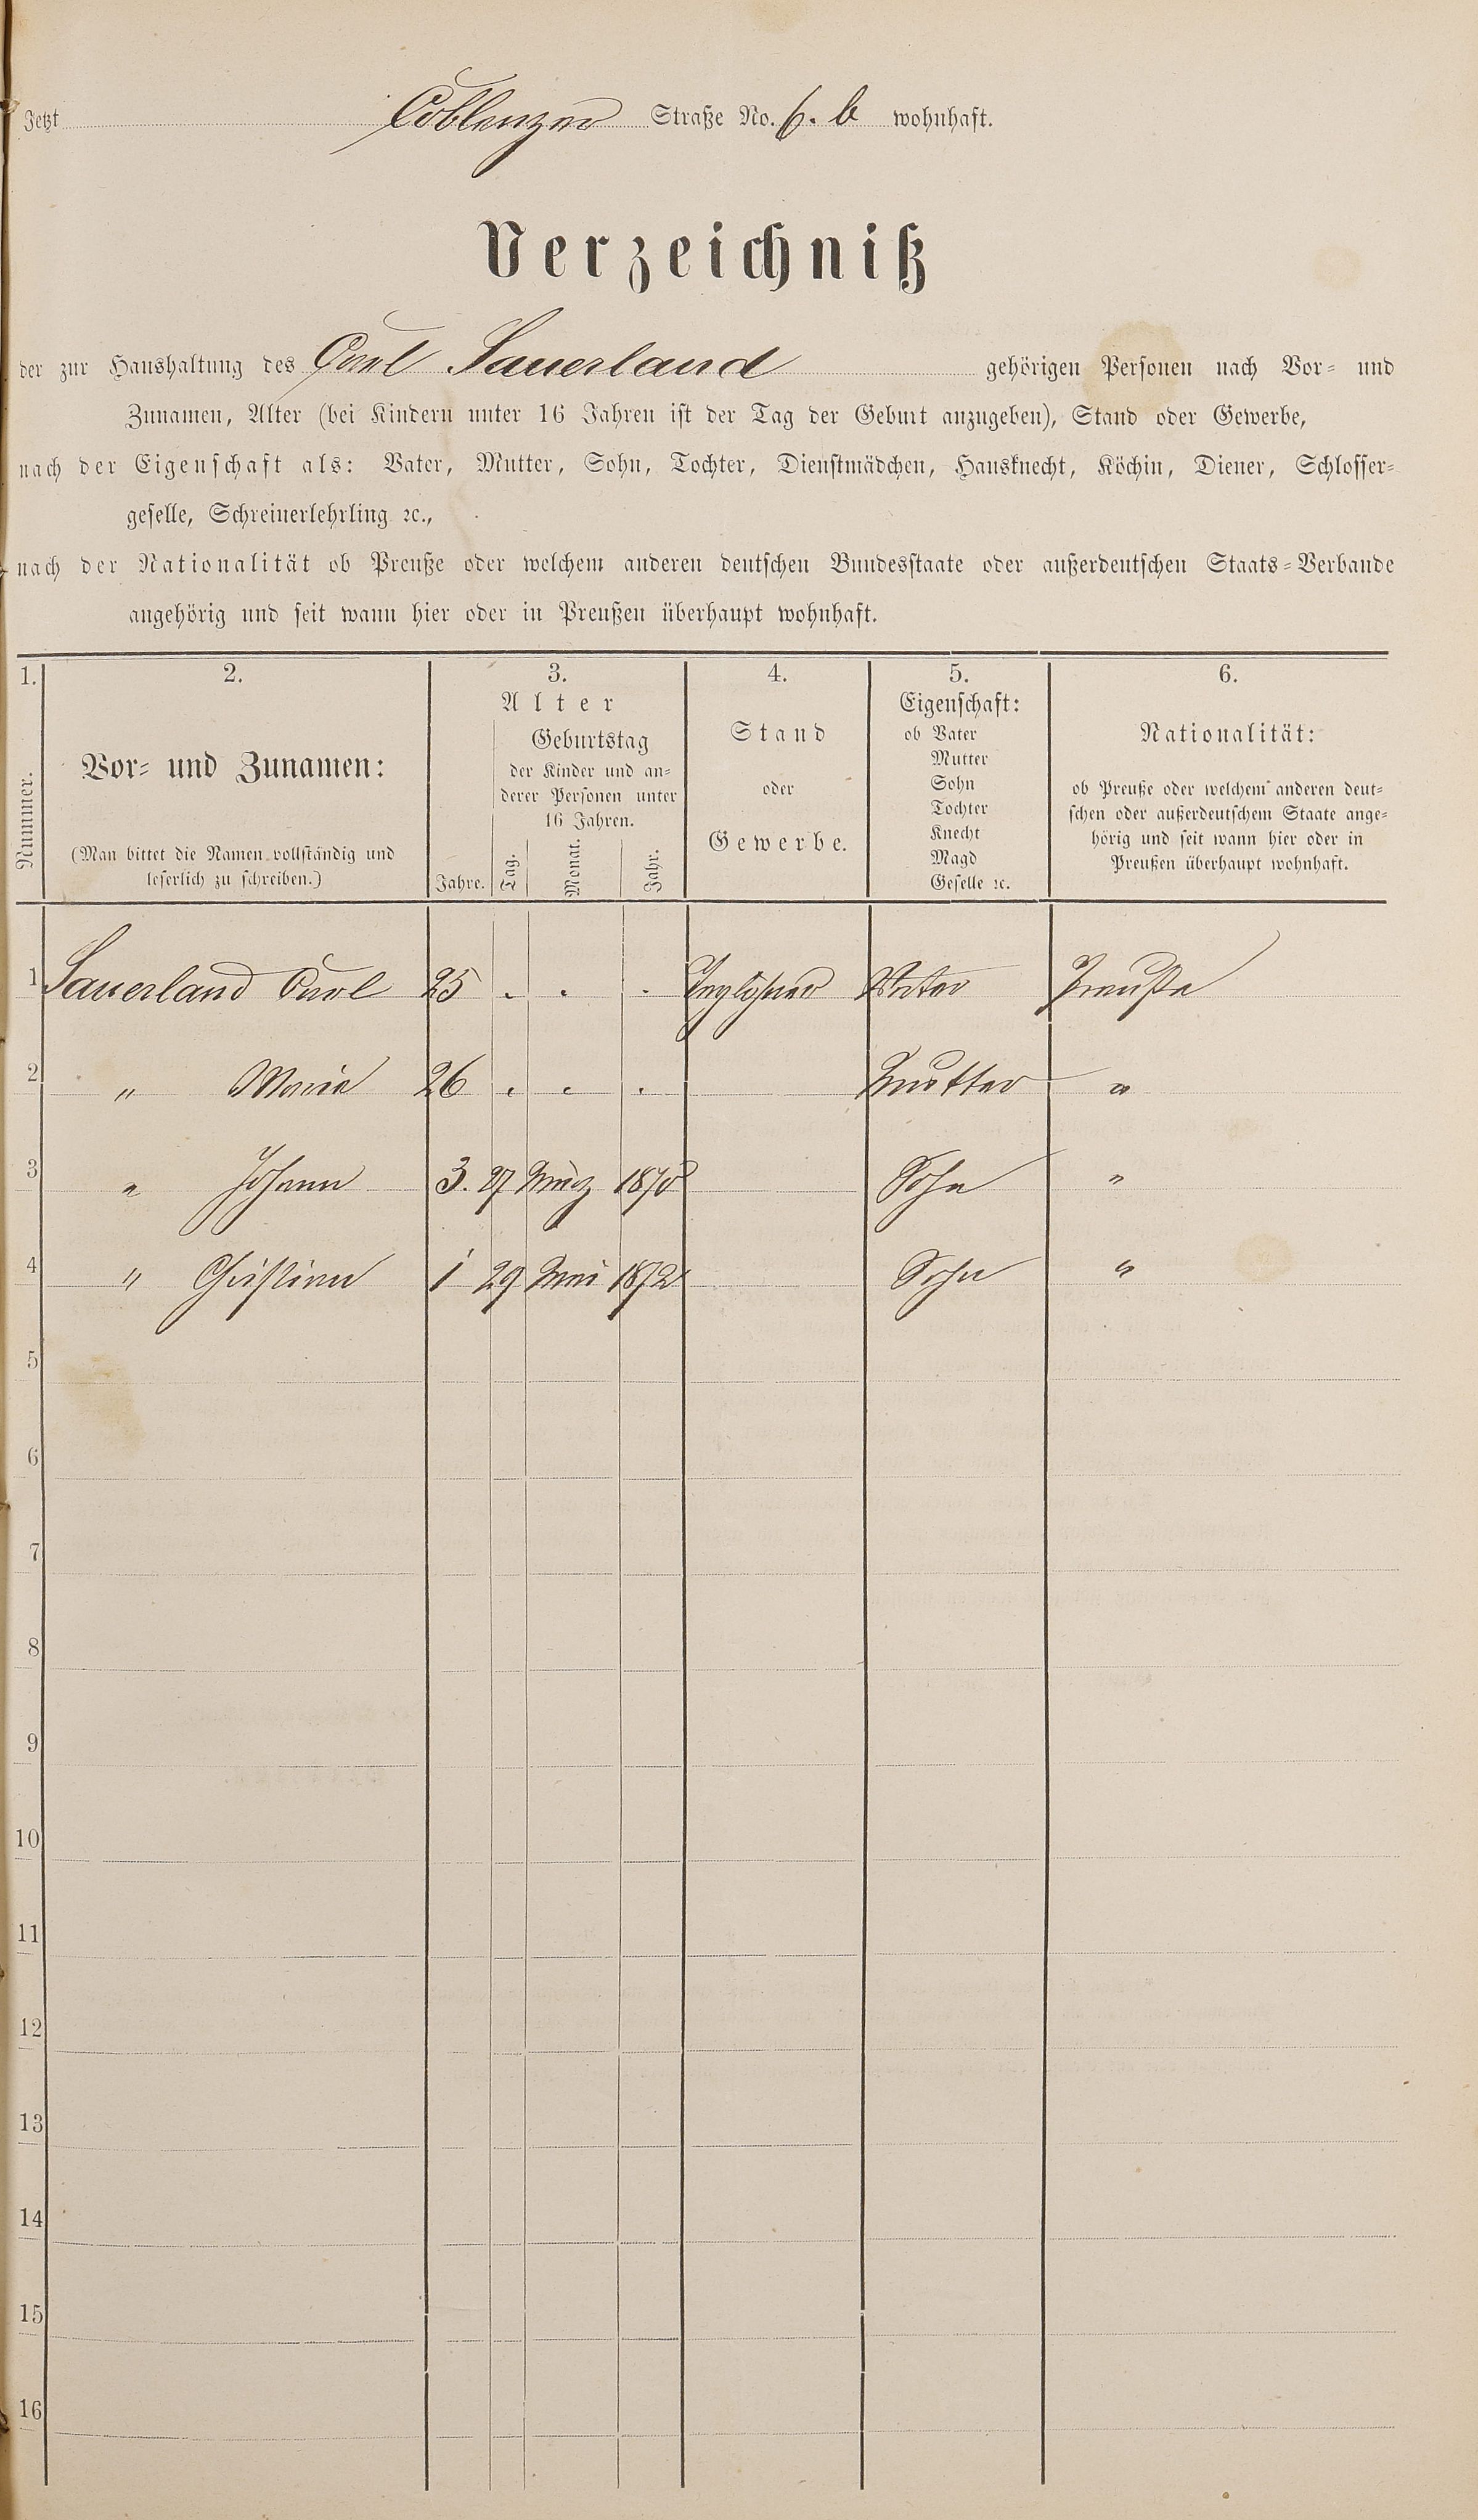 Jetzt Coblenzer Straße No. 6. b wohnhaft.
Verzeichniß
der zur Haushaltung des Carl Sauerland gehörigen Personen nach Vor- und
Zunamen, Alter (bei Kindern unter 16 Jahren ist der Tag der Geburt anzugeben), Stand oder Gewerbe,
nach der Eigenschaft als: Vater, Mutter, Sohn, Tochter, Dienstmädchen, Hausknecht, Köchin, Diener, Schlosser-
geselle, Schreinerlehrling ꝛc.,
nach der Nationalität ob Preuße oder welchem anderen deutschen Bundesstaate oder außerdeutschen Staats-Verbande
angehörig und seit wann hier oder in Preußen überhaupt wohnhaft.
1. 2. 3. 4. 5. 6.
Nummer.
Vor- und Zunamen:
(Man bittet die Namen vollständig und
leserlich zu schreiben.)
Alter
Jahre.
Geburtstag
der Kinder und an-
derer Personen unter
16 Jahren.
Tag. Monat. Jahr.
Stand
oder
Gewerbe.
Eigenschaft:
ob Vater
Mutter
Sohn
Tochter
Knecht
Magd
Geselle ꝛc.
Nationalität:
ob Preuße oder welchem anderen deut-
schen oder außerdeutschem Staate ange-
hörig und seit wann hier oder in
Preußen überhaupt wohnhaft.
1 Sauerland Carl 25 . . . Taglöhner Vater Preuße
2 " Maria 26 . . . Mutter "
3 " Johann 3. 27 März 1870 Sohn "
4 " Christian 1 29 Mai 1872 Sohn "
5
6
7
8
9
10
11
12
13
14
15
16